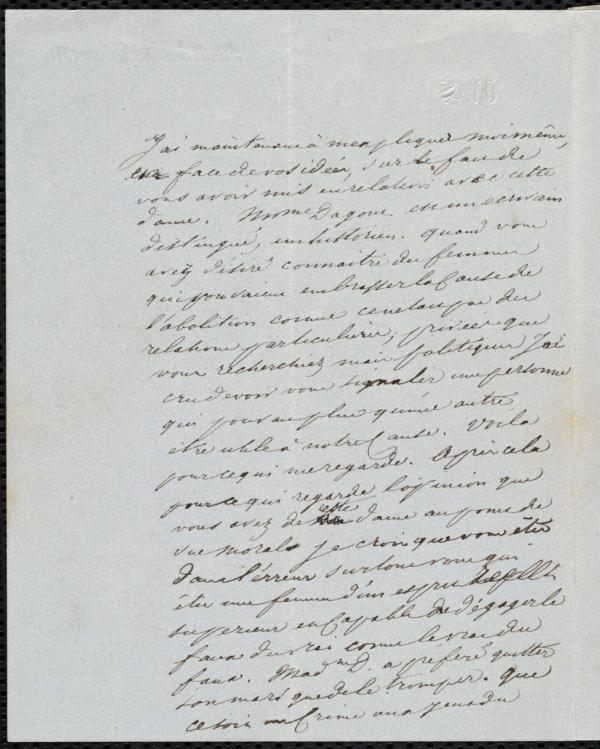 J'ai maintenant à m'expliquer moi même,
en face de vos idées, sur le fait de
vous avoir mis en relation avec cette
dame. Mme Dagout est un écrivain
distingué, un historien. quand vous
avez désiré connaitre des femmes
qui pouvaient embrasser la Cause de
l'abolition comme ce n'etait pas des
relations particulières, privées que
vous recherchiez mais politiques J'ai
cru devoir vous signaler une personne
qui pouvait plus qu'une autre
être utile à notre Cause. Voila
pour ce qui me regarde. Après cela
pour ce qui regarde l'opinion que
vous avez de cette dame au point de
vue morale je crois que vous êtes
dans l'érreur surtout vous qui
êtes une femme d'un esprit
superieur et Capable de dégager le
faux du vrai comme le vrai du
faux. Mad me D. a préféré quitter
son mari que de le tromper. que
ce soit un Crime aux yeux du